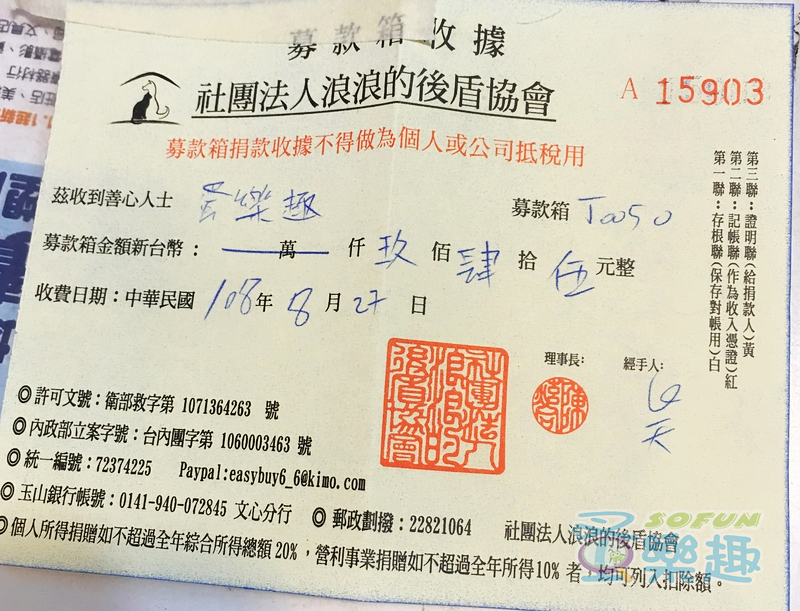 募款箱收據
社團法人浪浪的後盾協會
A 15903
募款箱捐款收據不得做為個人或公司抵稅用
茲收到善心人士 樂趣 募款箱 J0050
募款箱金額新台幣： 萬 仟 玖 佰 肆 拾 伍 元整
收費日期：中華民國 108 年 8 月 27 日
第三聯：證明聯（給捐款人）黃
第二聯：記帳聯（作為收入憑證）紅
第一聯：存根聯（保存對帳用）白
理事長：
經手人：
社團法人浪浪的後盾協會
◎許可文號：衛部救字第 1071364263 號
◎內政部立案字號：台內團字第 1060003463 號
◎統一編號：72374225 Paypal:easybuy6_6@kimo.com
◎玉山銀行帳號：0141-940-072845 文心分行 ◎郵政劃撥：22821064 社團法人浪浪的後盾協會
◎個人所得捐贈如不超過全年綜合所得總額20%，營利事業捐贈如不超過全年所得10%者，均可列入扣除額。
SOFUN
樂趣